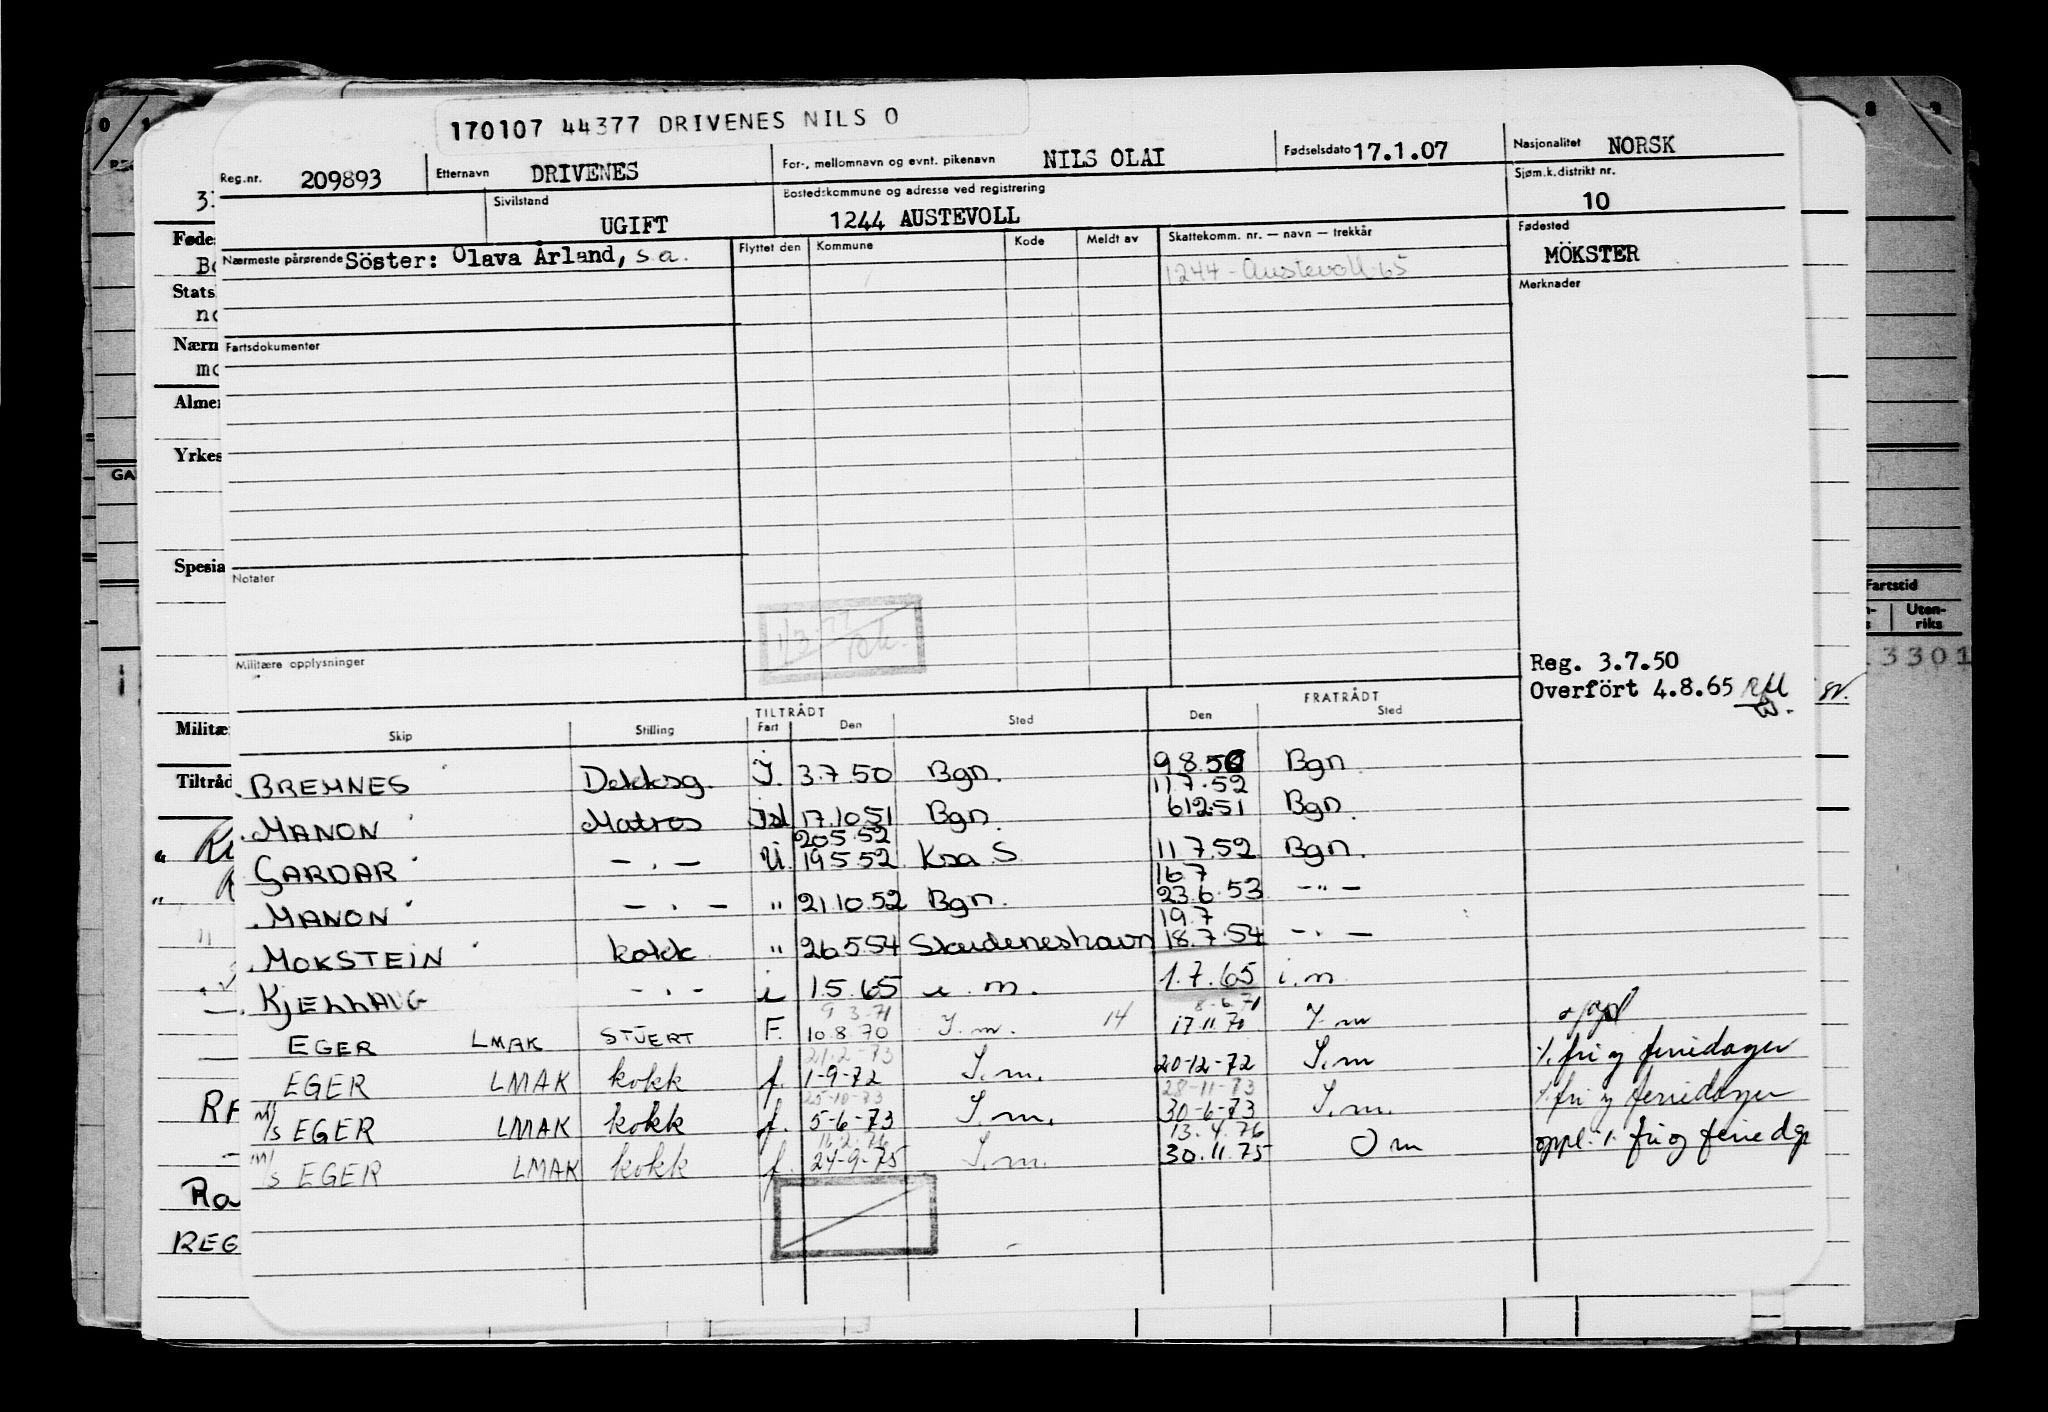 170107 44377 DRIVENES NILS O
Reg.nr. 209893 Etternavn DRIVENES For-, mellomnavn og evnt. pikenavn NILS OLAI Fødselsdato 17.1.07 Nasjonalitet NORSK
Sivilstand UGIFT Bostedskommune og adresse ved registrering 1244 AUSTEVOLL Sjøm.k.distrikt nr. 10
Nærmeste pårørende Söster: Olava Årland, s.a. Flyttet den Kommune Kode Meldt av Skattekomm. nr. — navn — trekkår Fødested MÖKSTER
1244 - Austevoll 65
Merknader
Fartsdokumenter
Notater
Militære opplysninger
Reg. 3.7.50
Overfört 4.8.65
TILTRÅDT FRATRÅDT
Skip Stilling Fart Den Sted Den Sted
BREMNES Dekksg. I. 3.7.50 Bgn. 9.8.50 Bgn.
11.7.52
MANON Matros Isl 17.10.51 Bgn. 6.12.51 Bgn.
20.5.52
GARDAR — . — U. 19.5.52 Ksa S. 11.7.52 Bgn.
16.7
MANON — . — " 21.10.52 Bgn. 23.6.53 — " —
19.7
MOKSTEIN kokk " 26.5.54 Skudeneshavn 18.7.54 — . —
KJELLAUG — . — i 1.5.65 i. m. 1.7.65 i. m.
9 3-71 8-6.71
EGER LMAK STUERT F. 10.8.70 I. m. 14 17.11.70 I. m
21.2-73
EGER LMAK kokk f. 1-9-72 I. m. 20-12-72 I. m ./. fri og feriedager
25-10-73 28-11-73
M/S EGER LMAK kokk f. 5-6-73 I. m. 30-6-73 I. m. ./. fri og feriedager
16.2.76 13.4.76
M/S EGER LMAK kokk f. 24-9-75 I. m. 30.11.75 O m oppl. ./. fri og feriedgr
Fartstid
Uten-
riks
3301
GA
Yrkes
Spesia
Militæ
Tiltråd
REG